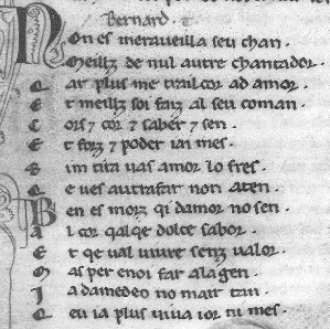 Bernard. t
Non es meraveilla seu chan.
Meillz de nul autre chantador.
Qar plus me trai l cor ad amor.
E t meillz soi faiz al seu coman.
C ors 7 cor 7 saber 7 sen.
E t forz 7 poder iai mes.
S im tira vas amor lo fres.
Q e ves autra far non aten.
Ben es morz qi damor no sen.
A l cor qalqe dolce sabor.
E t qe val viure senz valor.
M as per enoi far ala gen.
I a damedeo no mair tan.
Q eu ia plus viva ior ni mes.